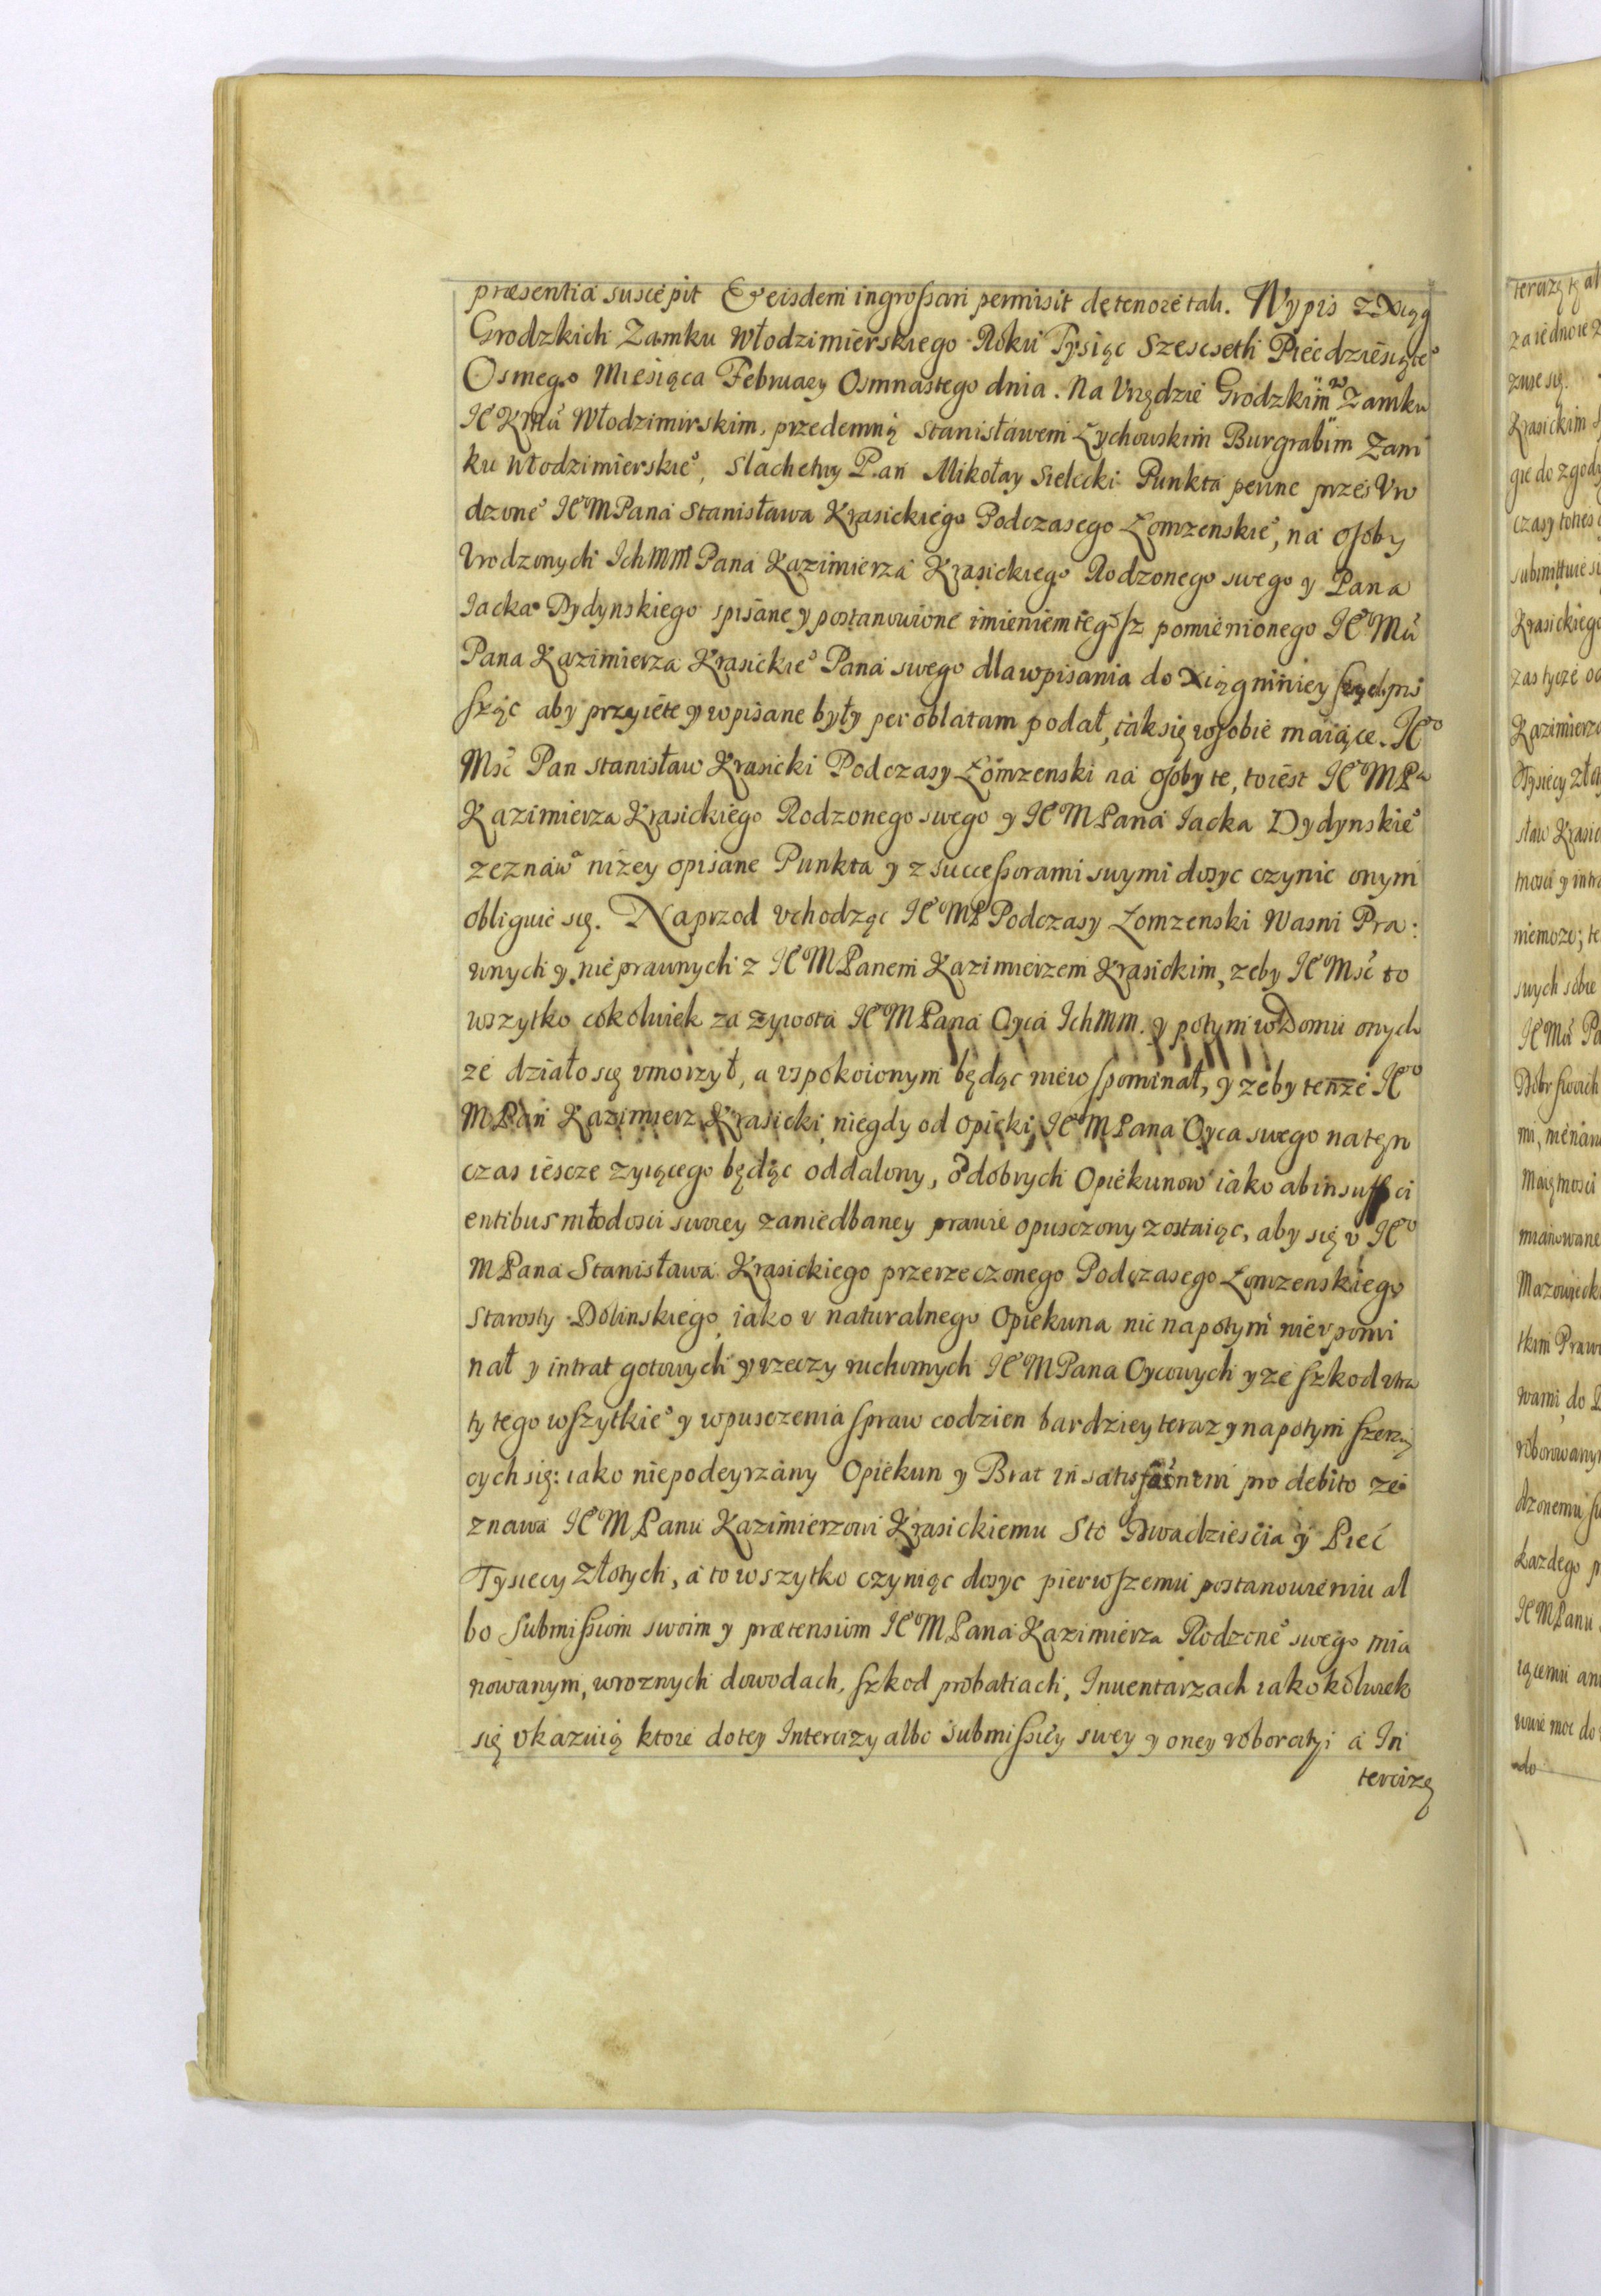 præsentia suscepit & eisdem ingrossari permisit de tenore tali. Wypis z Xiąg
Grodzkich Zamku Włodzimierskiego Roku Tysiąc Szescseth Piećdziesiąte°
Osmego Miesiąca February Osmnastego dnia. Na Vrzędzie Grodzkim w Zamku
IE° KMći Włodzimirskim, przedemną Stanisławem Łychowskim Burgrabim Zam
ku Włodzimierskie°, Slachetny Pan Mikołay Sielecki Punkta pewne przes Vro
dzone° IE° M Pana Stanisława Krasickiego Podczasego Łomzenskie°, na osoby
Vrodzonych Ich MM Pana Kazimierza Krasickiego Rodzonego swego y Pana
Iacka Dydynskiego spisane y postanowione imieniem tegosz pomienionego IE° Mći
Pana Kazimierza Krasickie° Pana swego dla wpisania do Xiąg niniey szych pro
sząc aby przyięte y wpisane były per oblatam podał, tak się w sobie maiące. IE°
Mść Pan Stanisław Krasicki Podczasy Łomzenski na osoby te, to iest IE° M Pa
Kazimierza Krasickiego Rodzonego swego y IE° M Pana Iacka Dydynskie°
zeznawa nizey opisane Punkta y z successorami swymi dosyc czynic onym
obliguie się. Naprzod vchodząc IE° MP Podczasy Łomzenski Wasni Pra:
wnych y nie prawnych z IE° M Panem Kazimierzem Krasickim, zeby IE° Mść to
wszytko cokolwiek za zywota IE° M Pana Oyca Ich MM. y potym w Domu onych
ze działo się vmorzył, a vspokoionym będąc nie wspominał, y zeby tenze IE°
M Pan Kazimierz Krasicki, niegdy od opieki IE° M Pana Oyca swego na ten
czas iescze zyiącego będąc oddalony, od dobrych Opiekunow iako ab insuffici
entibus młodosci swoiey zaniedbaney prawie opusczony zostaiąc, aby się v IE°
M Pana Stanisława Krasickiego przerzeczonego Podczasego Łomzenskiego
Starosty Dolinskiego, iako v naturalnego Opiekuna nic napotym nie vpomi
nał y intrat gotowych y rzeczy ruchomych IE° M Pana Oycowych y ze szkod vtra
ty tego wszytkie° y wpusczenia spraw codzien bardziey teraz y napotym szerzą
cych się: iako niepodeyrzany Opiekun y Brat in satisfactnem pro debito ze
znawa IE° M Panu Kazimierzowi Krasickiemu Sto Dwadziescia y Pieć
Tysiecy Złotych, a to wszytko czyniąc dosyc pierwszemu postanowieniu al
bo submissiom swoim y prætensiom IE° M Pana Kazimierza Rodzone° swego mia
nowanym, w roznych dowodach, szkod probatiach, Inuentarzach iakokolwiek
się vkazuią ktore do tey Intercizy albo submissiey swey y oney roboratyi a In
tercizę